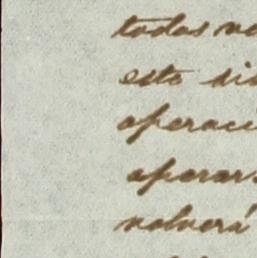 todas ve
este si
operaci
operar
volverá